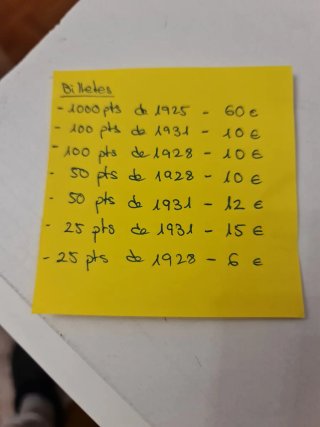 Billetes
- 1000 pts de 1925 - 60 €
- 100 pts de 1931 - 10 €
- 100 pts de 1928 - 10 €
- 50 pts de 1928 - 10 €
- 50 pts de 1931 - 12 €
- 25 pts de 1931 - 15 €
- 25 pts de 1928 - 6 €